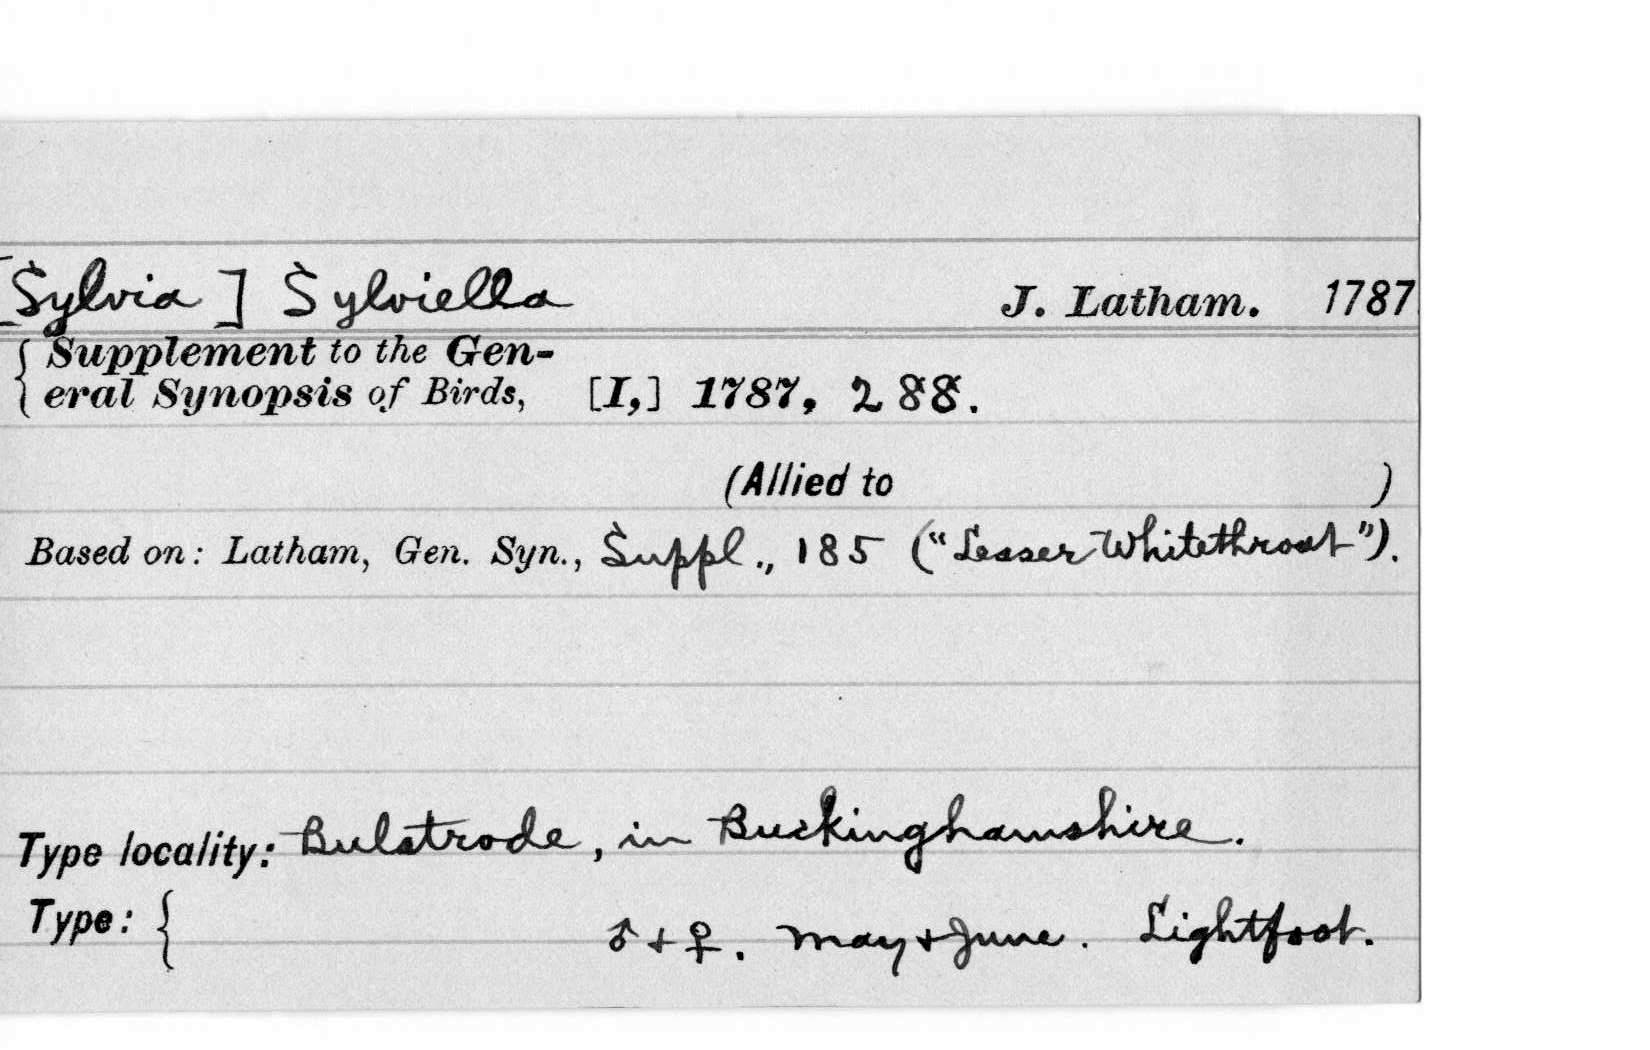 [Sylvia] Sylviella J. Latham. 1787
{ Supplement to the Gen-
eral Synopsis of Birds, [I,] 1787, 288.
(Allied to )
Based on: Latham, Gen. Syn., Suppl., 185 ("Lesser Whitethroat").
Type locality: Bulstrode, in Buckinghamshire.
Type: { ♂ + ♀. May + June. Lightfoot.